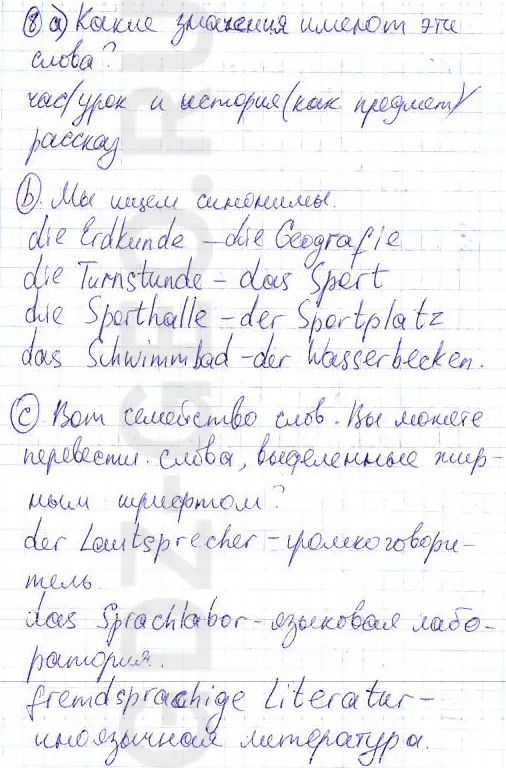 8 a) Какие значения имеют эти
слова?
час/урок и история (как предмет)/
рассказ
b). Мы ищем синонимы.
die Erdkunde – die Geografie
die Turnstunde – das Sport
die Sporthalle – der Sportplatz
das Schwimmbad – der Wasserbecken.
c). Вот семейство слов. Вы можете
перевести слова, выделенные жир-
ным шрифтом?
der Lautsprecher – громкоговори-
тель.
das Sprachlabor – языковая лабо-
ратория.
fremdsprachige Literatur –
иноязычная литература.
GDZ-GEO.RU